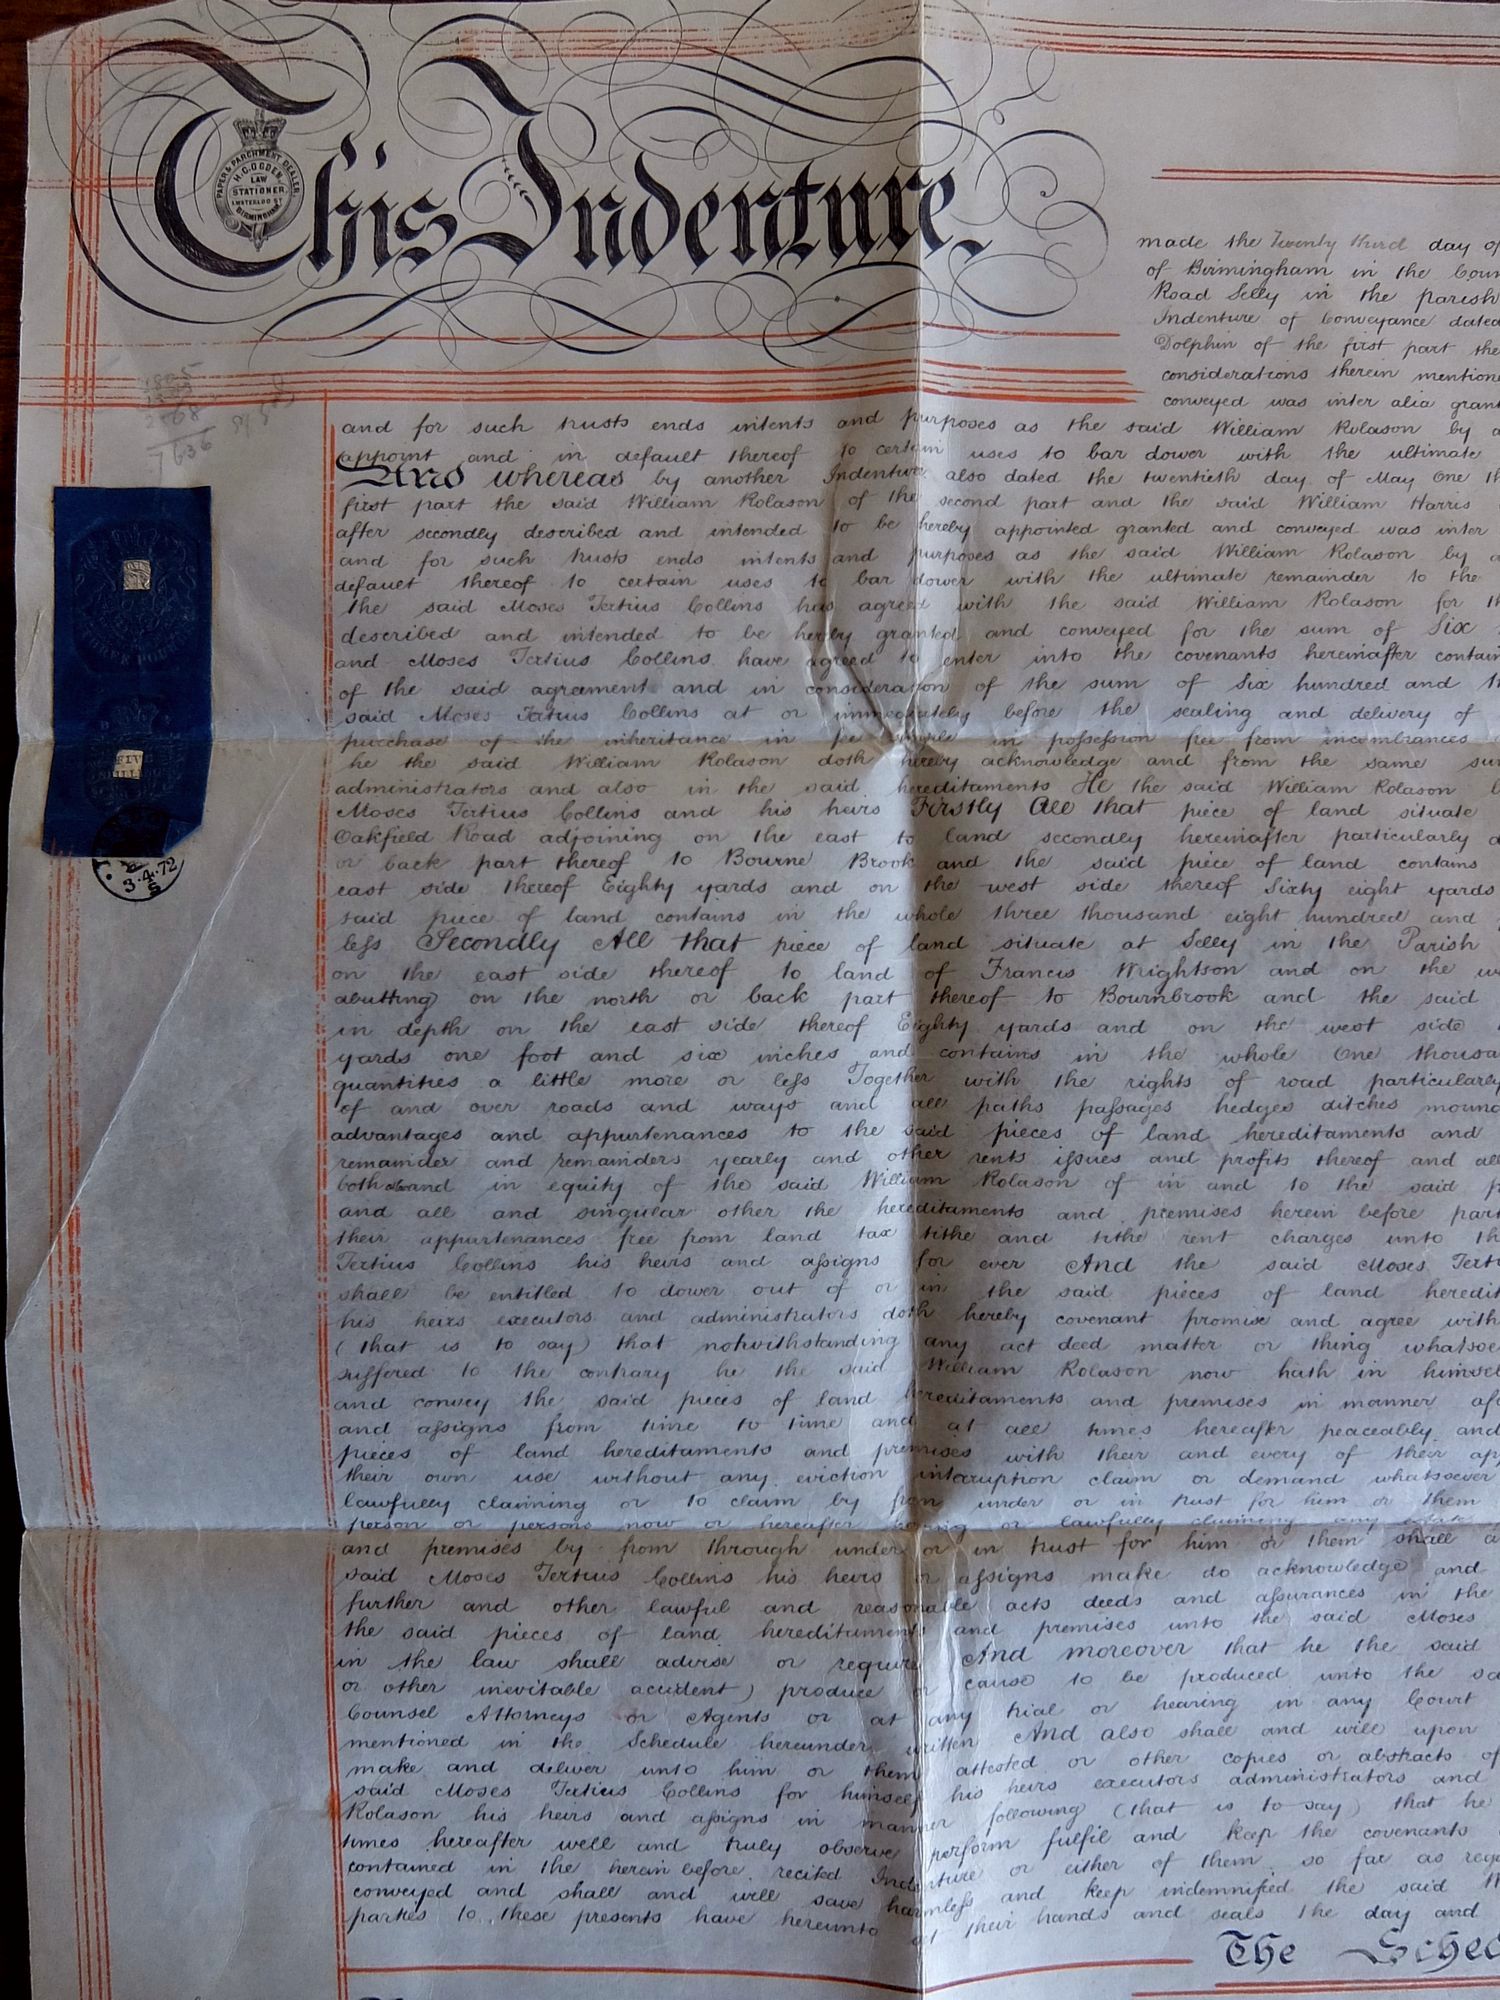 This Indenture
PAPER & PARCHMENT DEALER
H. C. OGDEN,
LAW
STATIONER,
WATERLOO ST
BIRMINGHAM
made the Twenty third day of
of Birmingham in the Coun
Road Selly in the parish
Indenture of Conveyance dated
Dolphin of the first part the
considerations therein mentione
conveyed was inter alia grant
and for such trusts ends intents and purposes as the said William Rolason by a
appoint and in default thereof to certain uses to bar dower with the ultimate
And whereas by another Indenture also dated the twentieth day of May One th
first part the said William Rolason of the second part and the said William Harris
after secondly described and intended to be hereby appointed granted and conveyed was inter
and for such trusts ends intents and purposes as the said William Rolason by a
default thereof to certain uses to bar dower with the ultimate remainder to the
the said Moses Tertius Collins has agreed with the said William Rolason for th
described and intended to be hereby granted and conveyed for the sum of Six
and Moses Tertius Collins have agreed to enter into the covenants hereinafter contain
of the said agreement and in consideration of the sum of Six hundred and th
said Moses Tertius Collins at or immediately before the sealing and delivery of
purchase of the inheritance in fee simple in possession free from incumbrances
he the said William Rolason doth hereby acknowledge and from the same su
administrators and also in the said hereditaments He the said William Rolason
Moses Tertius Collins and his heirs Firstly All that piece of land situate
Oakfield Road adjoining on the east to land secondly hereinafter particularly d
or back part thereof to Bourne Brook and the said piece of land contains
east side thereof Eighty yards and on the west side thereof Sixty eight yards
said piece of land contains in the whole three thousand eight hundred and
less Secondly All that piece of land situate at Selly in the Parish
on the east side thereof to land of Francis Wrightson and on the w
abutting on the north or back part thereof to Bournbrook and the said
in depth on the east side thereof Eighty yards and on the west side
yards one foot and six inches and contains in the whole One thousa
quantities a little more or less Together with the rights of road particularly
of and over roads and ways and all paths passages hedges ditches moun
advantages and appurtenances to the said pieces of land hereditaments and
remainder and remainders yearly and other rents issues and profits thereof and all
both and in equity of the said William Rolason of in and to the said p
and all and singular other the hereditaments and premises herein before part
their appurtenances free from land tax tithe and tithe rent charges unto th
Tertius Collins his heirs and assigns for ever And the said Moses Terti
shall be entitled to dower out of or in the said pieces of land heredit
his heirs executors and administrators doth hereby covenant promise and agree with
(that is to say) that notwithstanding any act deed matter or thing whatsoe
suffered to the contrary he the said William Rolason now hath in himsel
and convey the said pieces of land hereditaments and premises in manner af
and assigns from time to time and at all times hereafter peaceably and
pieces of land hereditaments and premises with their and every of their ap
their own use without any eviction interruption claim or demand whatsoever
lawfully claiming or to claim by from under or in trust for him or them
person or persons now or hereafter having or lawfully claiming any estate
and premises by from through under or in trust for him or them shall a
said Moses Tertius Collins his heirs or assigns make do acknowledge and
further and other lawful and reasonable acts deeds and assurances in the
the said pieces of land hereditaments and premises unto the said Moses
in the law shall advise or require And moreover that he the said
or other inevitable accident) produce or cause to be produced unto the sa
Counsel Attorneys or Agents or at any trial or hearing in any Court
mentioned in the Schedule hereunder written And also shall and will upon
make and deliver unto him or them attested or other copies or abstracts of
said Moses Tertius Collins for himself his heirs executors administrators and
Rolason his heirs and assigns in manner following (that is to say) that he
times hereafter well and truly observe perform fulfil and keep the covenants
contained in the herein before recited Indenture or either of them so far as reg
conveyed and shall and will save harmless and keep indemnified the said W
parties to these presents have hereunto set their hands and seals the day and
The Sched
FIVE
SHILLINGS
3.4.72